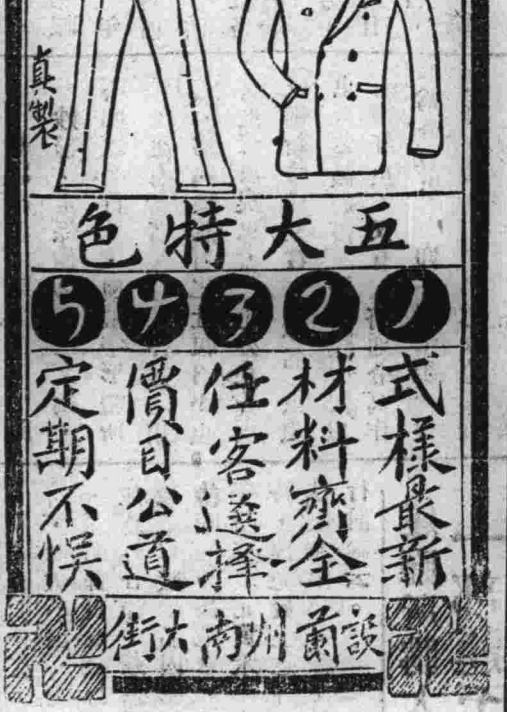 真製
五大特色
1 2 3 4 5
式樣最新
材料齊全
任客選擇
價目公道
定期不悮
設蘭州南大街